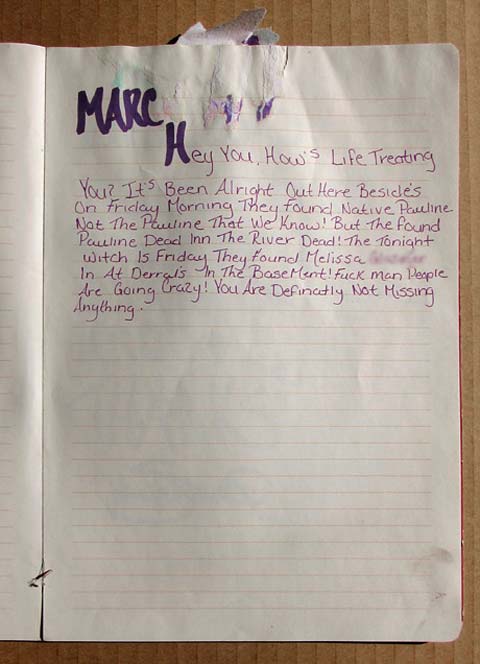 MARC
Hey You, How's Life Treating
You? It's Been Alright Out Here Besides
On Friday Morning They Found Native Pauline
Not The Pauline That We Know! But The Found
Pauline Dead Inn The River Dead! The Tonight
witch Is Friday They Found Melissa
In At Derral's In The Basement! Fuck man People
Are Going Crazy! You Are Definatly Not Missing
Anything.